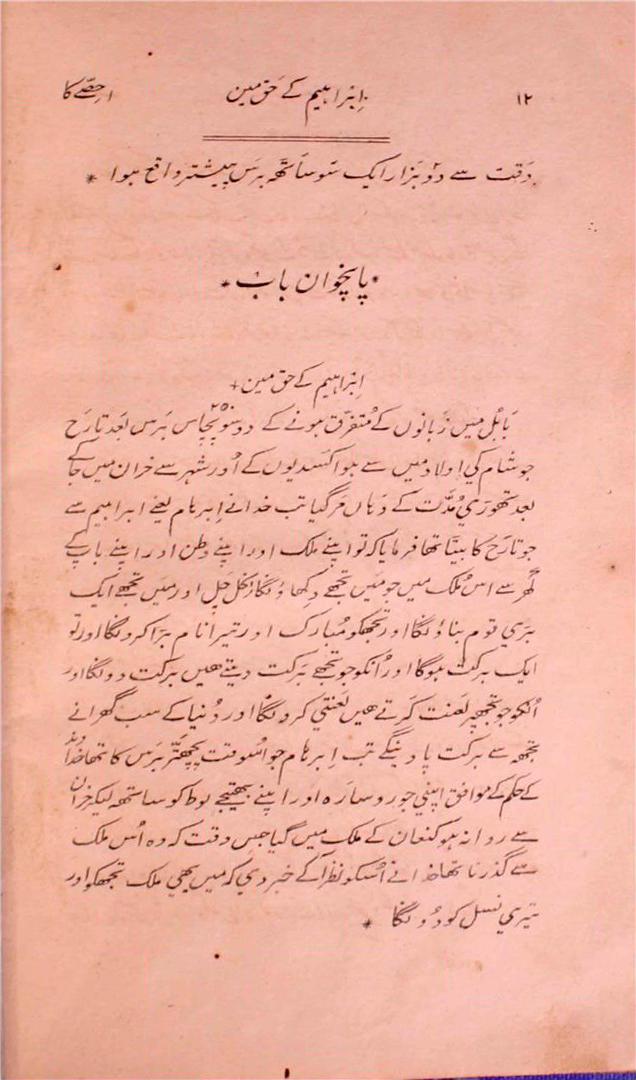 ۱۲ اِبراہیم کے حَق مین ۱ حِصّے کا
وَقت سے دو ہزار ایک سَو ساٹھ برَس پیشتر واقع ہوا *
* پانچوان باب *
اِبراہیم کے حق مین +
بَابُل میں زبانوں کے مُتفرّق ہونے کے دو سَو پچّاس برَس بَعد تارَح
جو شام کي اولاد میں سے ہوا کسدیوں کے اُور شہر سے خران میں جاکے
بعد تھوڑي مُدَّت کے وَہاں مَر گیا تب خدا نے اِبرہام یعنے ابراہیم سے
جو تارَح کا بیٹا تھا فرمایا کہ تو اپنے ملک اور اپنے وطن اور اپنے باپ کے
گھر سے اس مُلک میں جو مَیں تجھے دِکھاؤنگا نکل چَل اور مَیں تجھے ایک
بڑي قوم بناؤنگا اور تجھکو مُبارک اور تیرا نام بڑا کرونگا اور تو
ایک برکت ہوگا اور اُنکو جو تجھے برَکت دیتے ھیں برکت دونگا اور
اُنکو جو تجھپر لعنت کَرتے ھیں لَعنتي کرونگا اور دُنیا کے سب گھرانے
تجھ سے برکت پاوینگے تب اِبرہام جو اُسوقت پچھتّر برَس کا تھا خداوند
کے حکم کے موافق اپني جورو سارَہ اور اپنے بھتیجے لوط کو ساتھ لیکر خران
سے روانہ ہو کنعان کے ملک میں گیا جس وقت کہ وہ اُس ملک
سے گذرتا تھا خدا نے اُسکو نظر آکے خبر دي کہ مَیں یھي ملک تجھکو اور
تیري نسل کو دُونگا *